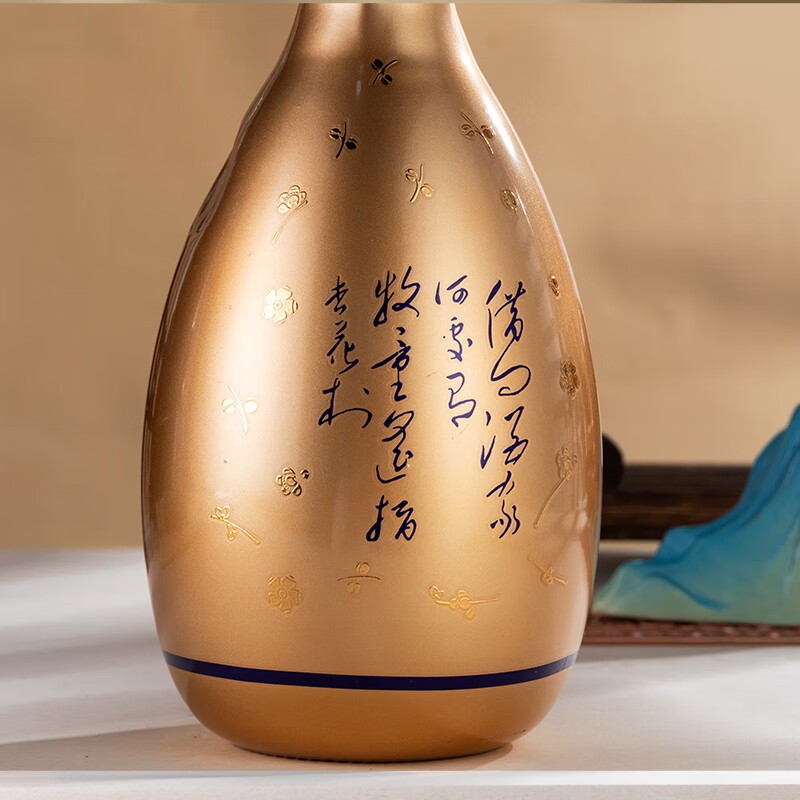 借问酒家
何处有
牧童遥指
杏花村